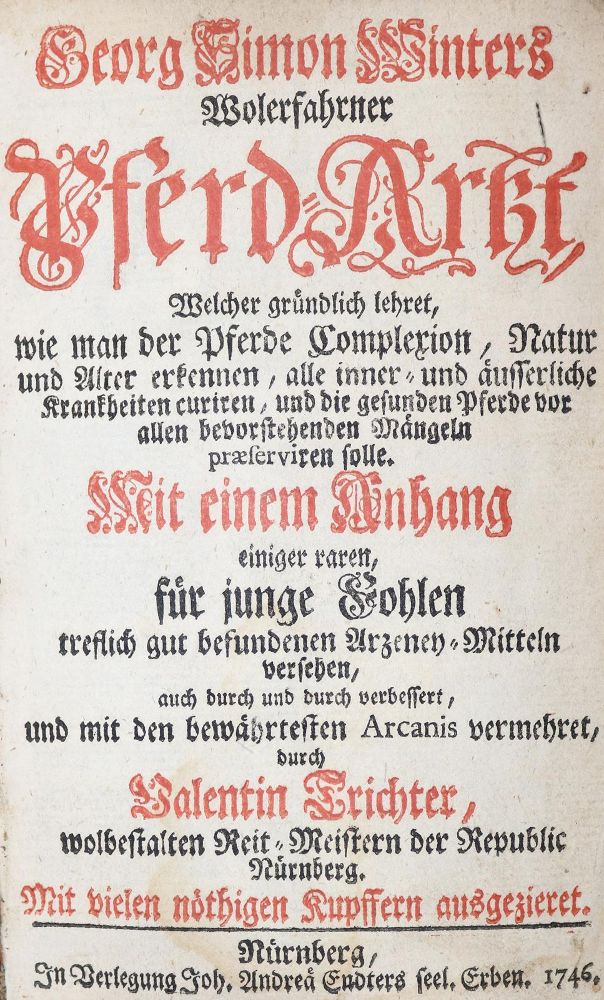 Georg Simon Winters
Wolerfahrner
Pferd-Artzt,
Welcher gründlich lehret,
wie man der Pferde Complexion, Natur
und Alter erkennen, alle inner- und äusserliche
Krankheiten curiren, und die gesunden Pferde vor
allen bevorstehenden Mängeln
præserviren solle.
Mit einem Anhang
einiger raren,
für junge Fohlen
treflich gut befundenen Arzeney-Mitteln
versehen,
auch durch und durch verbessert,
und mit den bewährtesten Arcanis vermehret,
durch
Valentin Trichter,
wolbestalten Reit-Meistern der Republic
Nürnberg.
Mit vielen nöthigen Kupffern ausgezieret.
Nürnberg,
In Verlegung Joh. Andreä Endters seel. Erben. 1746.